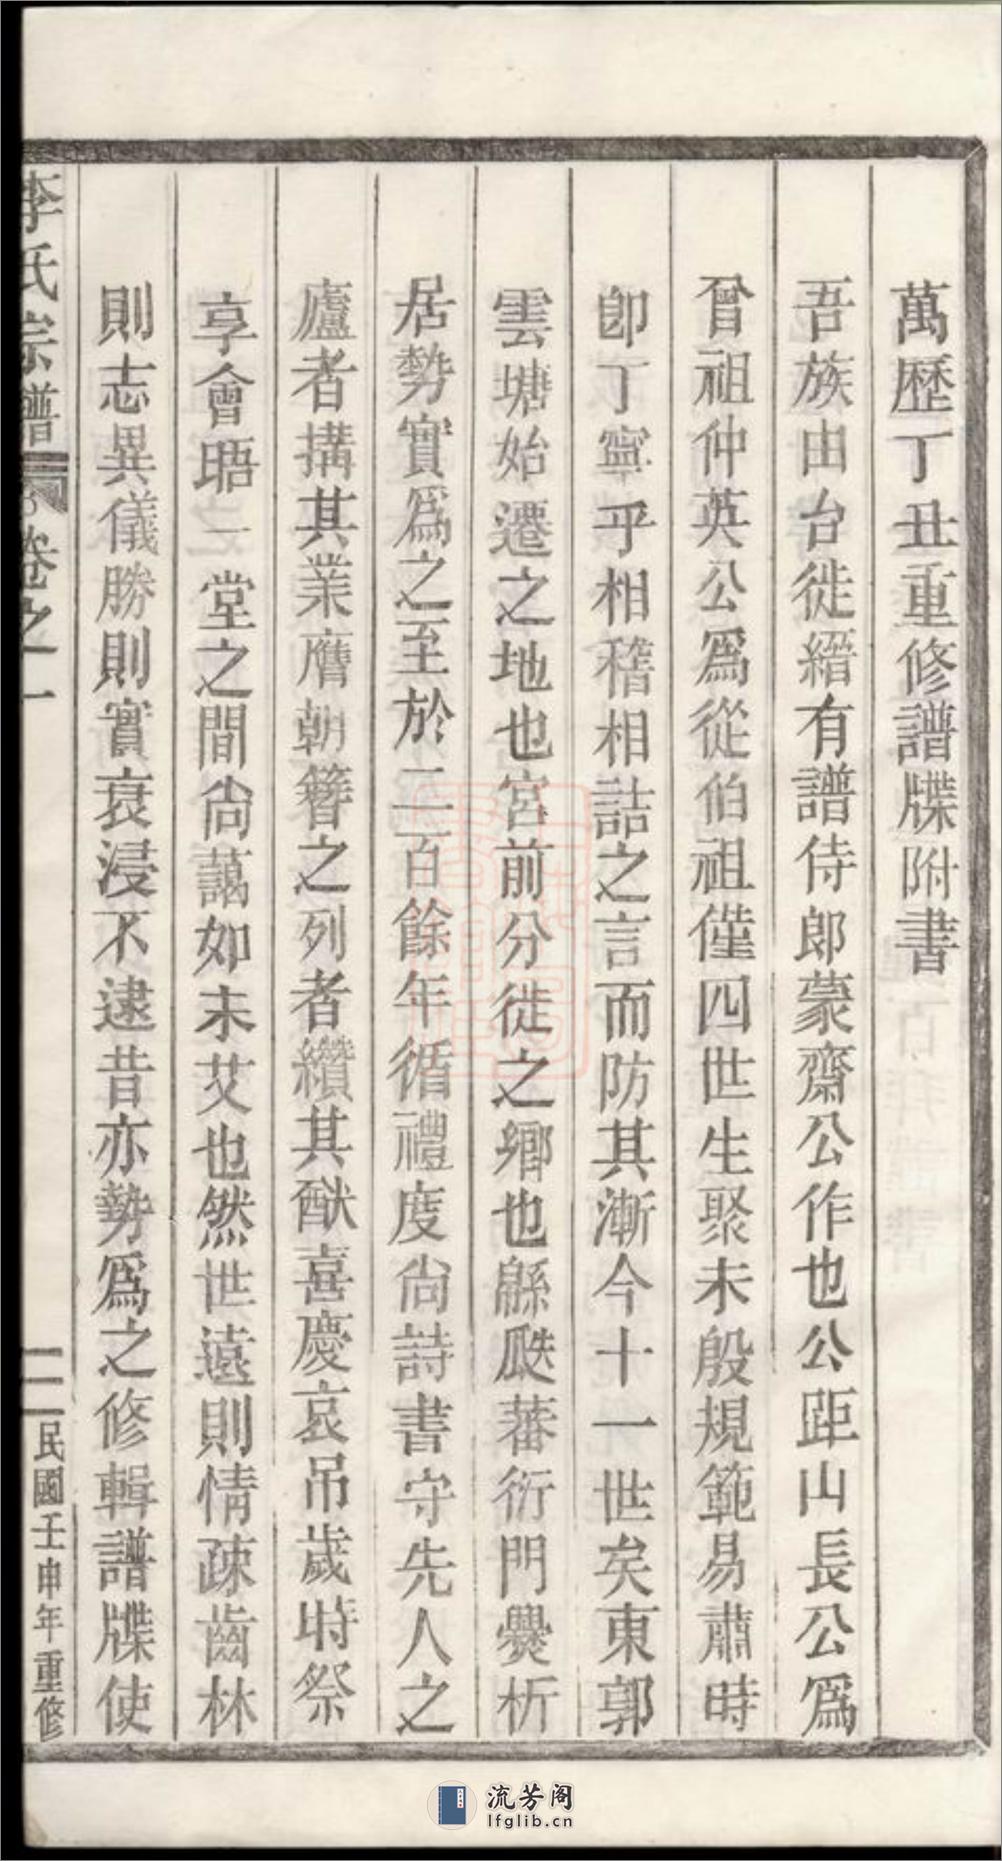 萬歷丁丑重修譜牒附書
吾族由台徙縉有譜侍郎蒙齋公作也公距山長公爲
曾祖仲英公爲從伯祖僅四世生聚未殷規範易肅時
卽丁寧乎相稽相詰之言而防其漸今十一世矣東郭
雲塘始遷之地也宮前分徙之鄉也緜瓞蕃衍門㸑析
居勢實爲之至於二百餘年循禮度尙詩書守先人之
廬者搆其業膺朝簪之列者纘其猷喜慶哀吊歲時祭
享會晤一堂之間尙藹如未艾也然世遠則情疎齒林
則志異儀勝則實衰浸不逮昔亦勢爲之修輯譜牒使
李氏宗譜 卷之一 二 民國壬申年重修
流芳阁
lfglib.cn